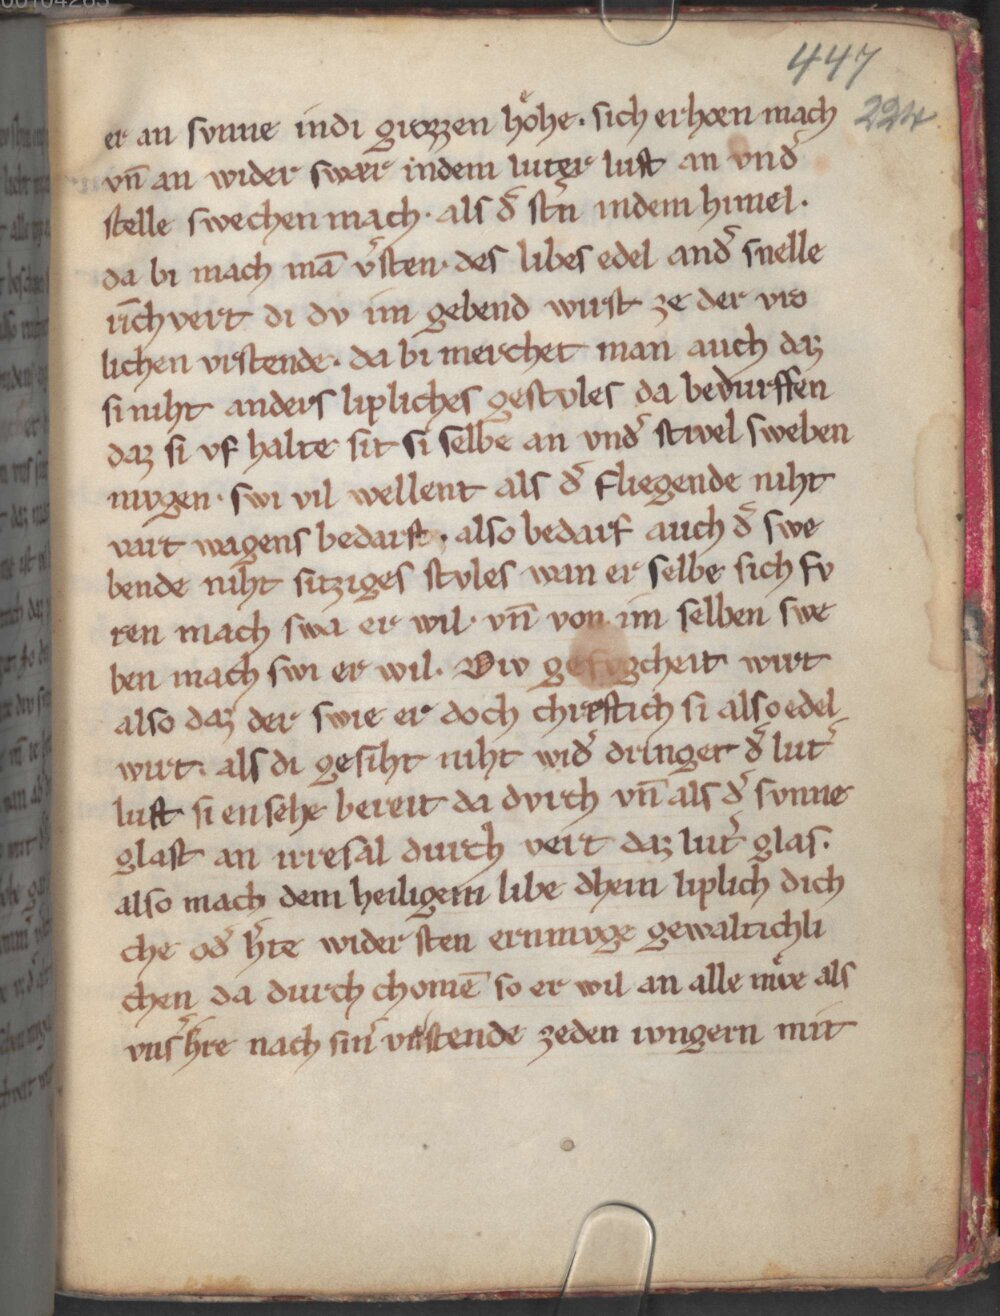 447
224
er an svnne indi grozzen hoͤhe· sich erhoen mach
vn̄ an wider swær indem luter luft an vnd̕
stelle swechen mach· als d̕ st̕n indem himel·
da bi mach mā v̕sten· des libes edel and̕ snelle
rīchvert di dv im gebend wirst ze der vro
lichen vrstende· da bi merchet man auch daz
si niht anders lipliches gestvles da bedurffen
daz si vf halte sit si selbe an vnd̕ stivel sweben
mvgen· swi vil wellent als d̕ fliegende niht
vart wagens bedarft· also bedarf auch d̕ swe
bende niht sitziges stvles wan er selbe sich fv
ren mach swa er wil· vn̄ von im selben swe
ben mach swi er wil. Div gefvgcheit wirt
also daz der swie er doch chreftich si also edel
wirt· als di gesiht niht wid̕ dringet d̕ lut̕
luft si ensehe bereit da dvrch vn̄ als d̕ svnne
glast an irresal durch vert daz lut̕ glas·
also mach dem heiligem libe dhein liplich dich
che od̕ h̕te wider sten ernmvge gewaltichli
chen da durch chomē so er wil an alle mͤve als
vns̕ h̕re nach sin̕ vrstende zeden ivngern mit